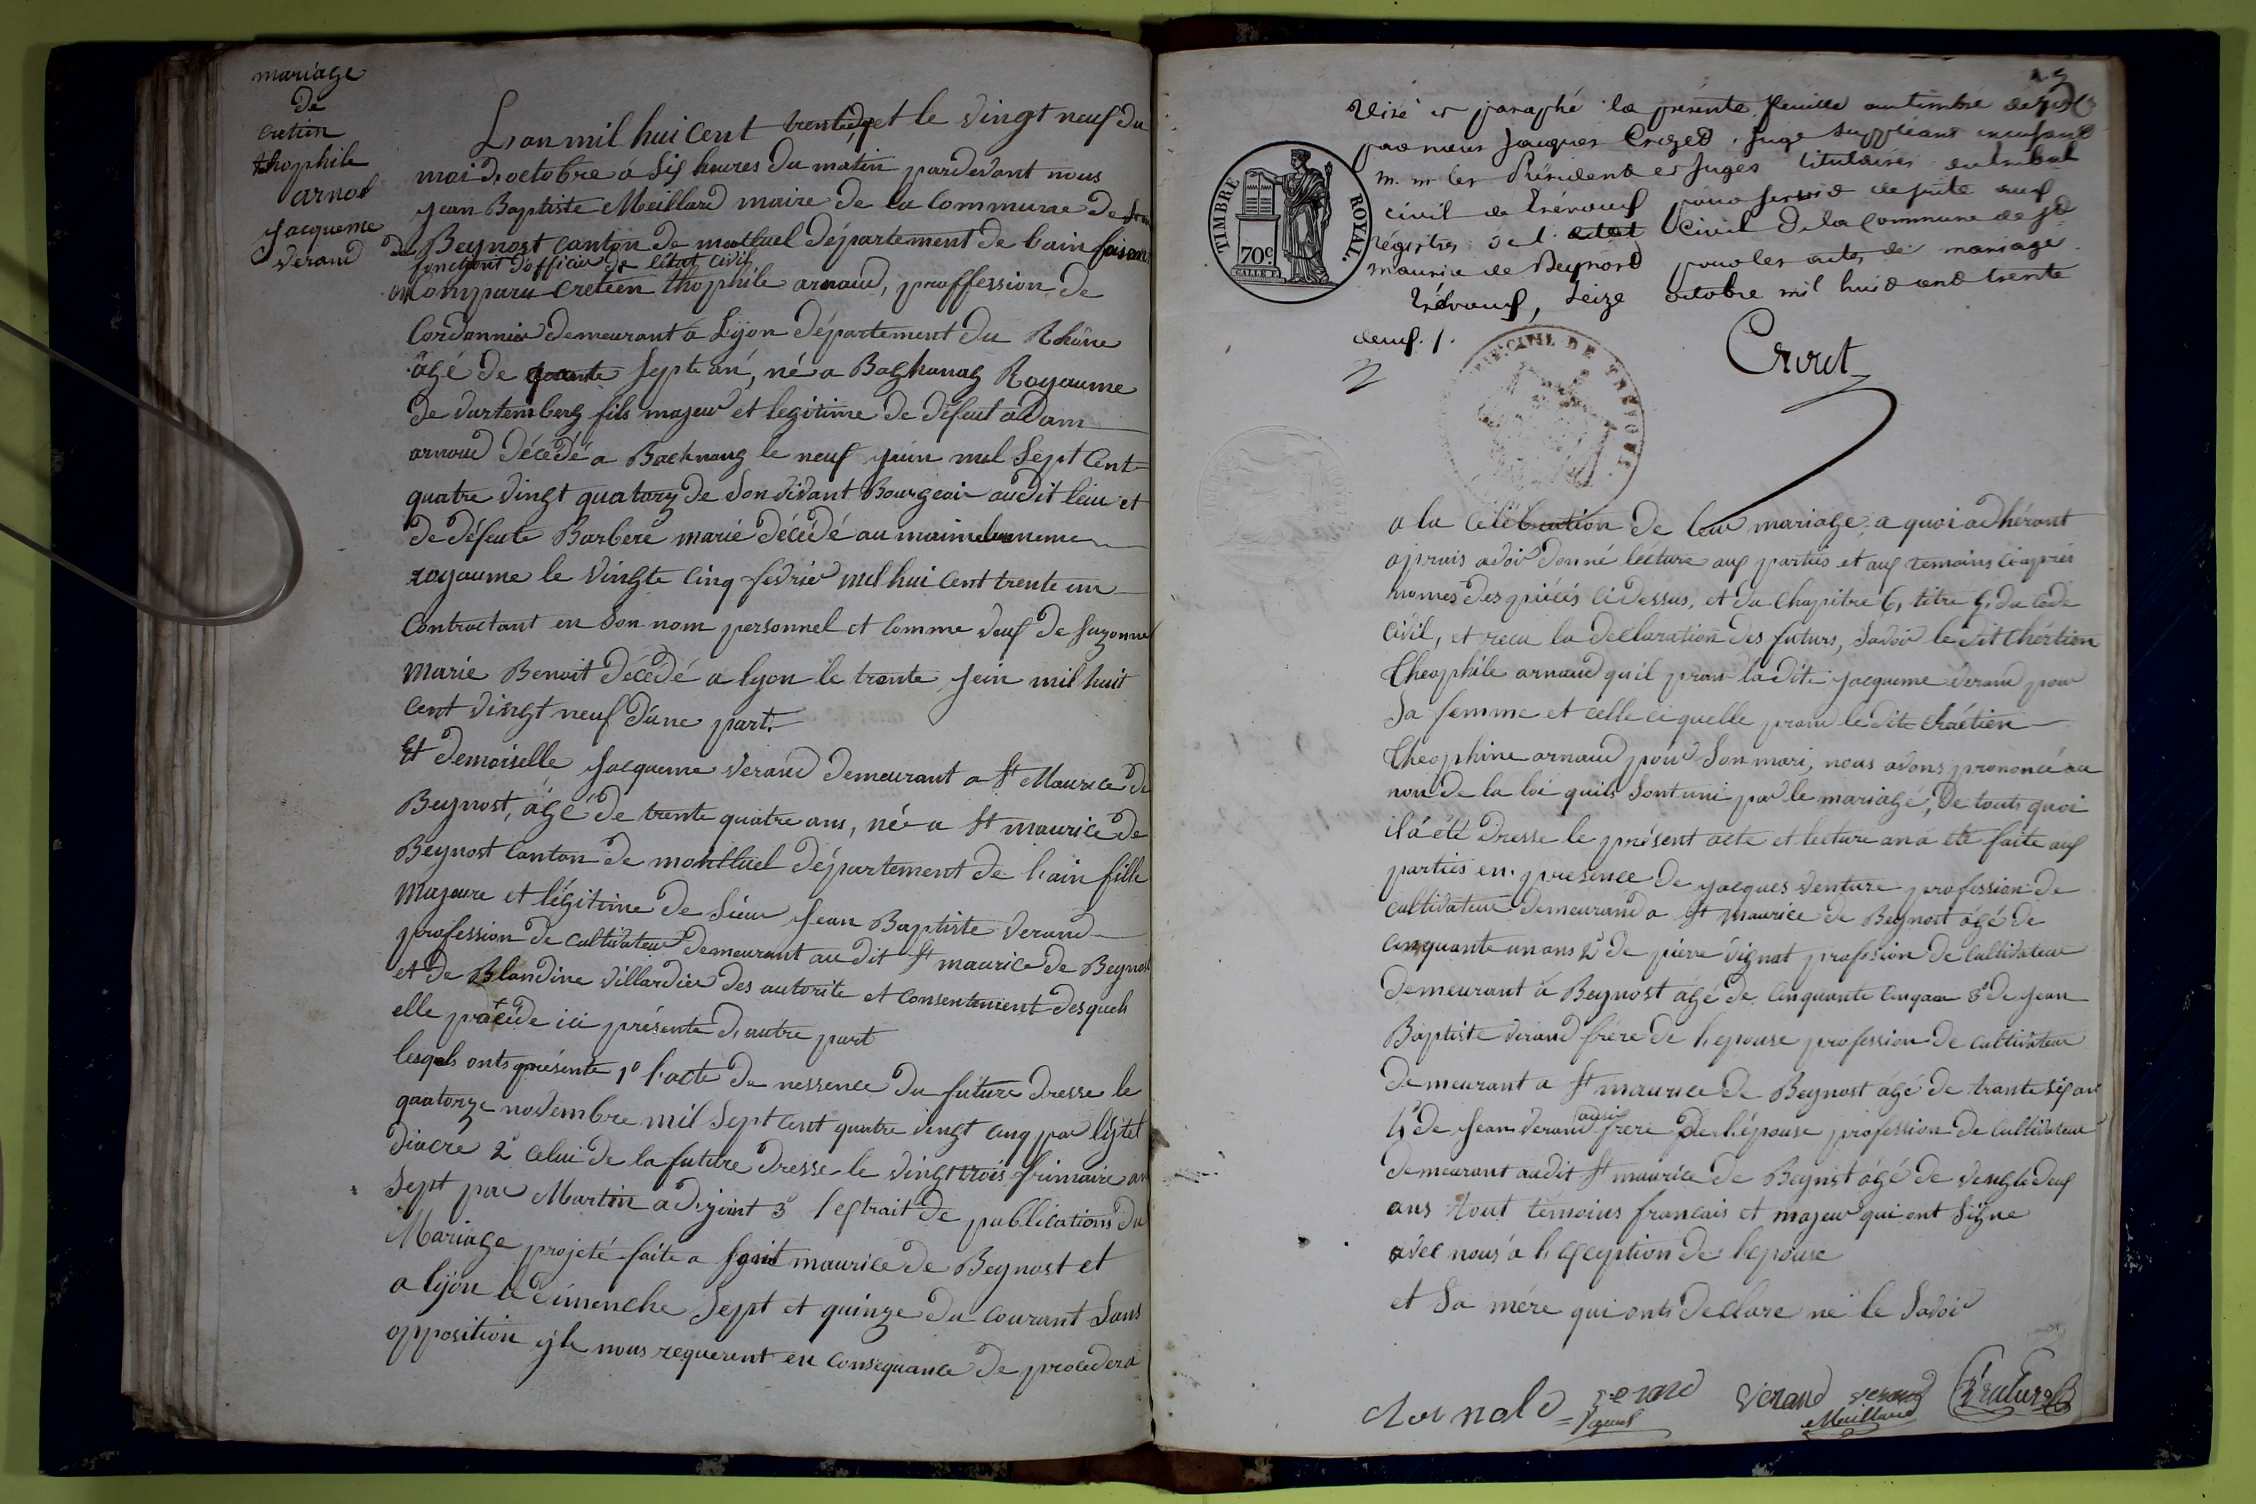 mariage
de
cretien
thophile
arnol
jacqueme
verand
L'an mil hui cent trente deux et le vingt neuf du
moi d'octobre à six heures du matin pardevant nous
jean Baptiste Meillard maire de la Commune de
de Beynost canton de montluel département de l'ain faisant
fonctions d'officier de l'état civil
comparu cretien thophile arnaud, proffession de
Cordonnier demeurant à Lyon département du Rhône
âgé de quarante sept an, né a Baghanag Royaume
de vurtemberg fils majeur et legitime de défeut adam
arnoud décédé a Backnang le neuf juin mil sept cent
quatre vingt quatorze de son vivant Bourgeoir audit leiu et
de défeute Barbere marié décédé au maime
royaume le vingte cinq fevrier mil hui cent trente un
contractant en son nom personnel et comme veuf de Suzonne
marie Benoit décédé a lyon le trente juin mil huit
cent vingt neuf d'une part.
Et demoiselle Jacqueme verand demeurant a St Maurice de
Beynost, âgé de trente quatre ans, né a St maurice de
Beynost canton de montluel département de l'ain fille
majeure et légitime de sieur Jean Baptiste verand
profession de cultivateur demeurant au dit St maurice de Beynost
et de Blandine villardier des autorite et consentement desquels
elle procède ici présente d'autre part
lesqels onts présente 1º l'acte de nessence du future dresse le
quatorze novembre mil sept cent quatre vingt cinq par
diacre 2º celui de la future dresse le vingt trois frimaire an
sept par Martin adjoint 3º l'extrait de publications du
Mariage projeté faite a saint maurice de Beynost et
a lyon le dimenche sept et quinze du courant sans
opposition nous requerent en consequance de procedera
Visé et paraphé la présente feuille au timbre de
par nous Jacques Crozet, juge suppléant en
m. m les Président et Juges titulaires au tribal
civil de Trévoux pour servir de suite aux
régistres de l'état Civil de la commune de St
maurice de Beynost pour les actes de mariage
Trévoux, seize octobre mil huit cent trente
deux. /.
TIMBRE ROYAL.
70c.
Crozet
a la célébration de leur mariage, a quoi adhérant
apruis avoir donné lecture aux parties et aux temoins ciapres
nomes des piécés cidessus, et du chapitre 6, titre 5, du code
civil, et recu la declaration des futurs, savoir le dit chértien
Theophile arnaud quil pran la dite jacqueme verand pour
sa femme et celle ci quelle prand le dit chrétien
Theophine arnaud pour son mari, nous avons prononcé au
non de la loi quils sont uni par le mariagé, de touts quoi
il a été dresse le présent acte et lecture an a eté faite aux
parties en presence de jacques venture profession de
cultivateur demeurand a St maurice de Beynost âgé de
cinquante un ans 2º de pierre vignat profession de cultivateur
demeurant á Beynost âgé de cinquante cinq an 3º de jean
Baptiste verand frère de l'epouse profession de cultivateur
demeurant a St maurice de Beynost âgé de trante six ans
4º de jean verand ausi frere de l'épouse profession de cultivateur
demeurant audit St maurice de Beynst âgé de vingtedeux
ans tout témoins francais et majeur qui ont signe
avec nous a l'exception de l'epouse
et sa mére qui onts declare ne le savoir
Arnold verand verand verand
Vignat Meillard